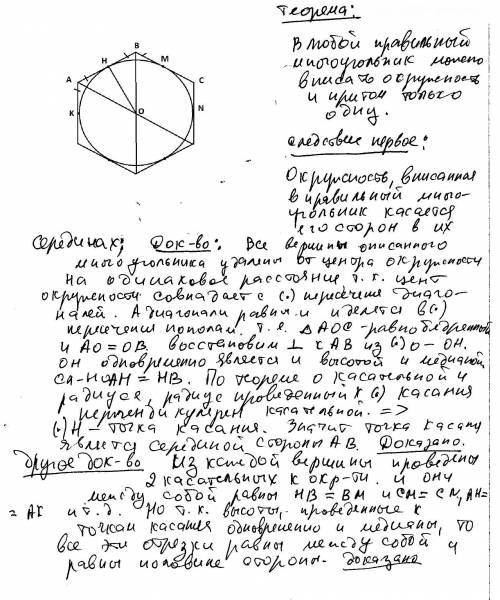 Теорема:
В любой правильный
многоугольник можно
вписать окружность
и притом только
одну.
B
H
M
A
C
K
O
N
следствие первое:
Окружность, вписанная
в правильный много-
угольник касается
его сторон в их
серединах; Док-во: Все вершины описанного
многоугольника удалены от центра окружности
на одинаковое расстояние т.к. центр
окружности совпадает с (.) пересечения диаго-
налей. А диагонали равны и делятся в (.)
пересечения пополам. т.е. △AOC - равнобедренный
и AO = OB. восстановим ⊥ к AB из (.) O - OH.
OH одновременно является и высотой и медианой
AH = HB. По теореме о касательной и
радиусе, радиус проведенный к (.) касания
перпендикулярен касательной. =>
(.) H - точка касания. Значит точка касан
является серединой стороны AB. Доказано.
Другое док-во Из каждой вершины проведены
2 касательных к окр-ти. и они
между собой равны HB = BM и CM = CN, AH =
= AK и т.д. Но т.к. высоты, проведенные к
точкам касания одновременно и медианы, то
все эти отрезки равны между собой и
равны половине стороны. доказано